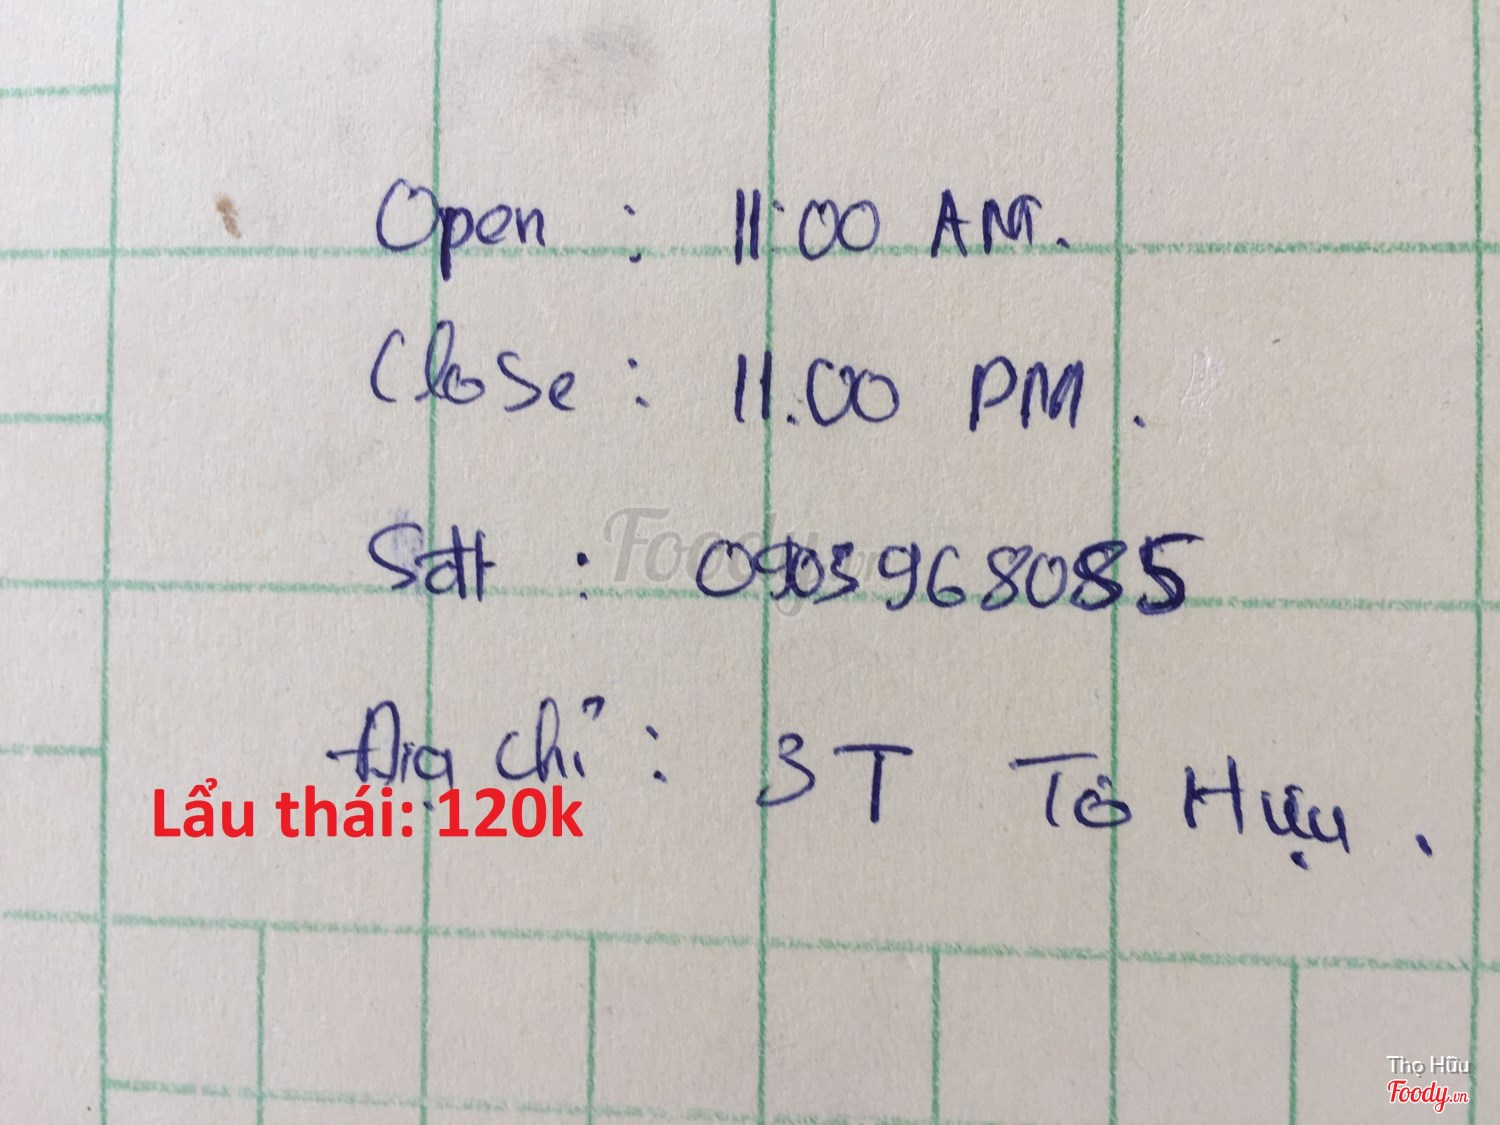 Open : 11:00 AM.
Close : 11.00 PM .
Foody.vn
Sđt : 0903968085
Địa chỉ : 3T Tô Hựu .
Lẩu thái: 120k
Thọ Hữu
Foody.vn